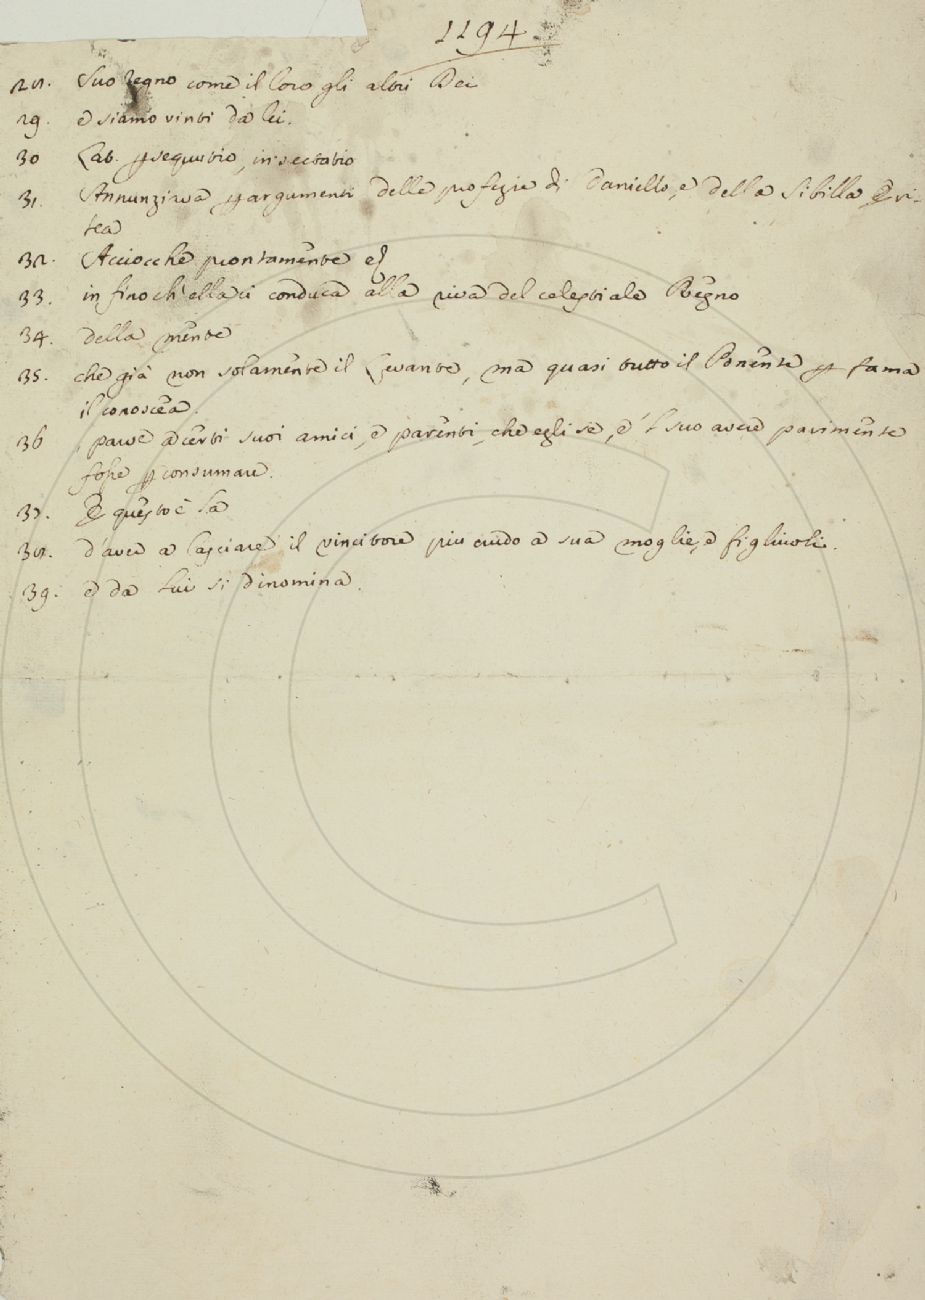 1194
28. Suo regno come il loro gli altri Dei
29. e siamo vinti da lei.
30 Lat. psequutio, insectatio
31. Annunziava p argumenti delle profezie di Daniello, e della Sibilla Eri-
tea
32. Acciocchè prontamente
33. in fino ch'ella ci conduca alla riva del celestiale Regno
34. della mente
35. che già non solamente il Levante, ma quasi tutto il Ponente p fama
il conoscea.
36 , parve a certi suoi amici, e parenti, che egli se, e 'l suo avere parimente
fosse p consumare.
37. E questo è la
38. d'aver a lasciare il vincitore più crudo a sua moglie, e figliuoli.
39. e da lui si dinomina.